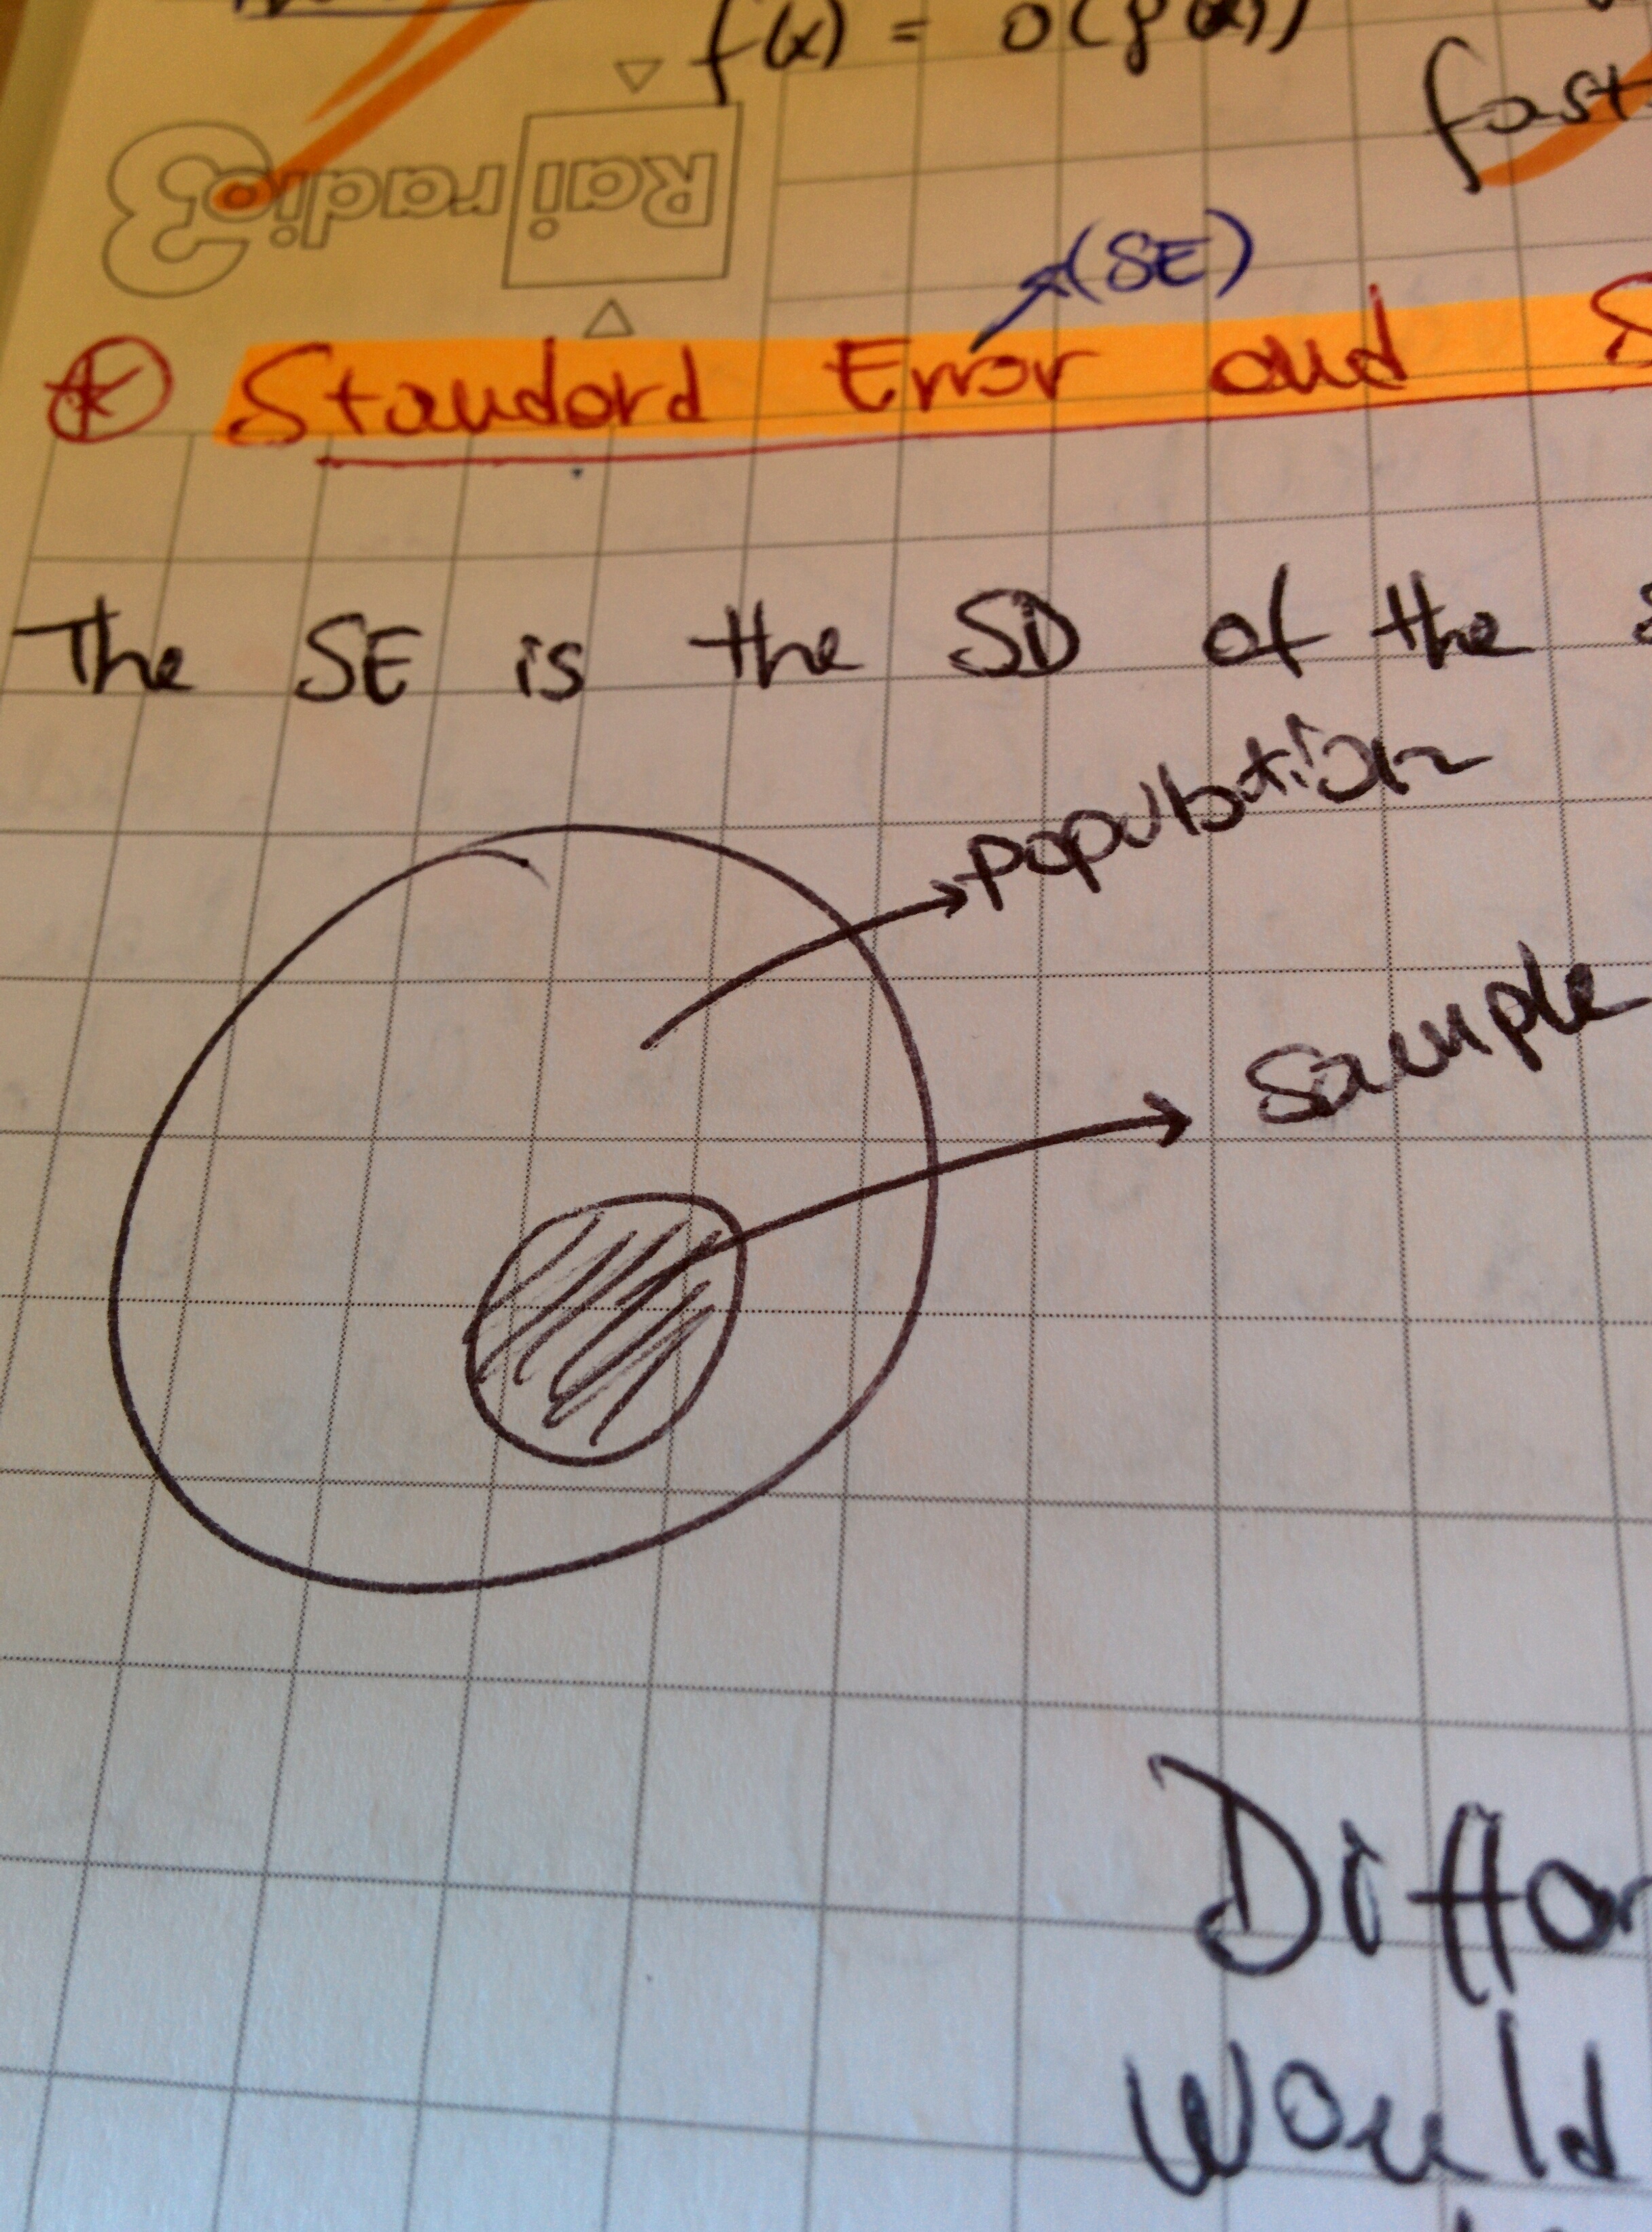 f(x) = o(g(x))
fast
Rai radio3
(SE)
Standard Error and S
The SE is the SD of the s
population
sample
Differ
would